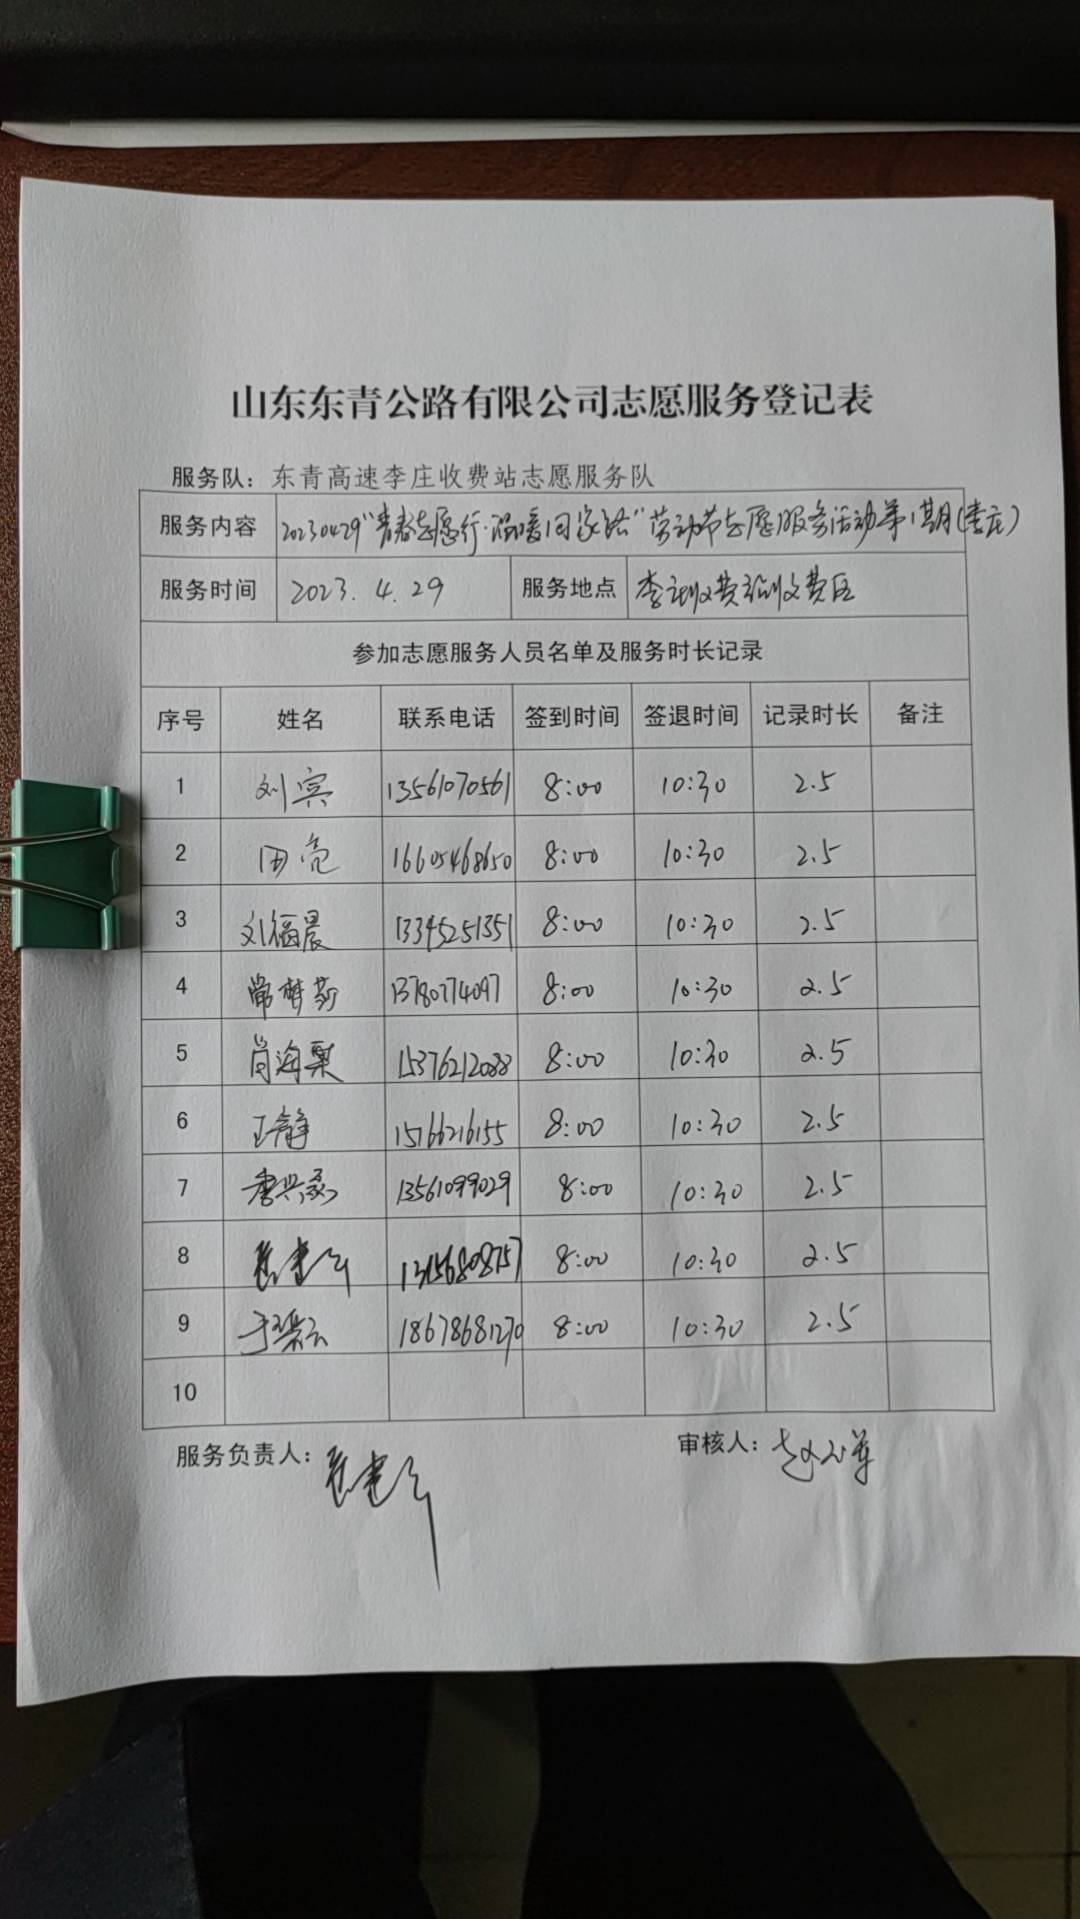 山东东青公路有限公司志愿服务登记表
服务队：东青高速李庄收费站志愿服务队
服务内容 20230429"青春志愿行·温暖回家路"劳动节志愿服务活动第1期(李庄)
服务时间 2023.4.29 服务地点 李庄收费站收费区
参加志愿服务人员名单及服务时长记录
序号 姓名 联系电话 签到时间 签退时间 记录时长 备注
1 刘宾 13561070561 8:00 10:30 2.5
2 田亮 16605468650 8:00 10:30 2.5
3 刘福晨 13345251351 8:00 10:30 2.5
4 常梦 13780774097 8:00 10:30 2.5
5 肖海 15376212088 8:00 10:30 2.5
6 王静 15766216155 8:00 10:30 2.5
7 13561099029 8:00 10:30 2.5
8 13156808757 8:00 10:30 2.5
9 18678681270 8:00 10:30 2.5
10
服务负责人： 审核人：